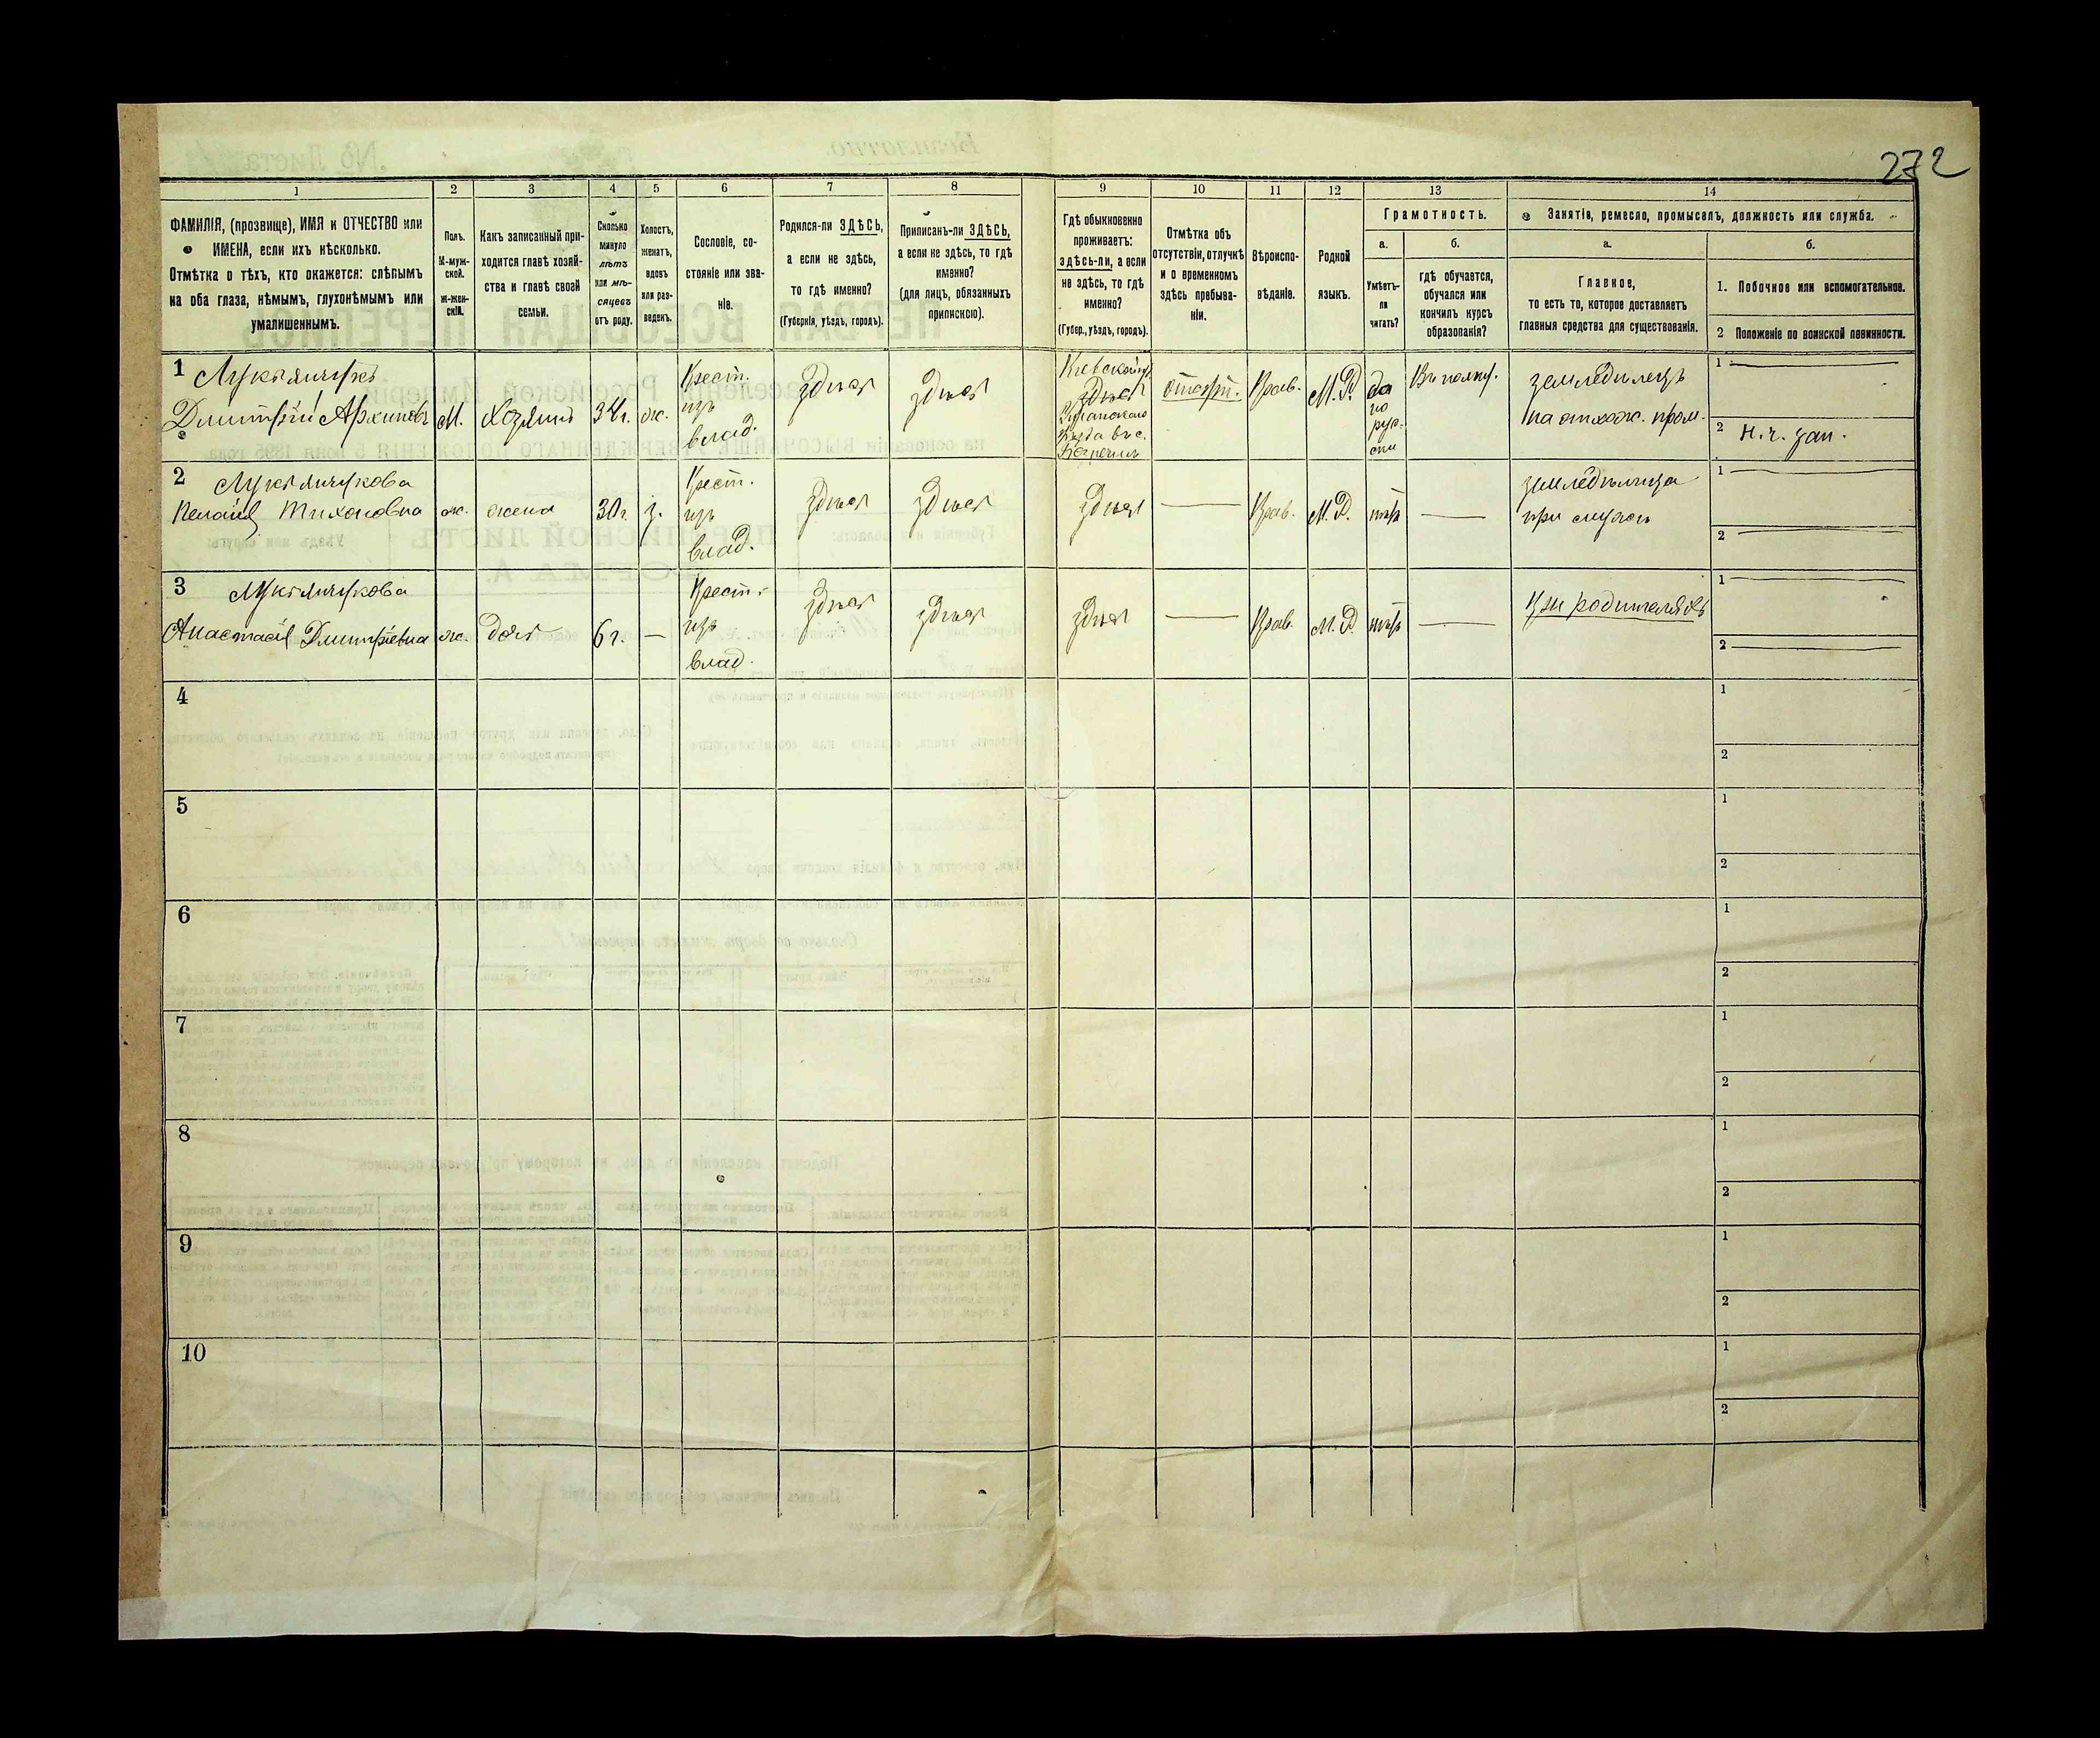 272
1 2 3 4 5 6 7 8 9 10 11 12 13 14
ФАМИЛІЯ, (прозвище), ИМЯ и ОТЧЕСТВО или
ИМЕНА, если ихъ нѣсколько.
Отмѣтка о тѣхъ, кто окажется: слѣпымъ
на оба глаза, нѣмымъ, глухонѣмымъ или
умалишеннымъ.
Полъ.
М-муж-
ской.
ж-жен-
скій.
Какъ записанный при-
ходится главѣ хозяй-
ства и главѣ своей
семьи.
Сколько
минуло
лѣтъ
или мѣ-
сяцевъ
отъ роду.
Холостъ,
женатъ,
вдовъ
или раз-
веденъ.
Сословіе, со-
стояніе или зва-
ніе.
Родился-ли ЗДѢСЬ,
а если не здѣсь,
то гдѣ именно?
(Губернія, уѣздъ, городъ).
Приписанъ-ли ЗДѢСЬ,
а если не здѣсь, то гдѣ
именно?
(для лицъ, обязанныхъ
припискою).
Гдѣ обыкновенно
проживаетъ:
здѣсь-ли, а если
не здѣсь, то гдѣ
именно?
(Губер., уѣздъ, городъ).
Отмѣтка объ
отсутствіи, отлучкѣ
и о временномъ
здѣсь пребыва-
ніи.
Вѣроиспо-
вѣданіе.
Родной
языкъ.
Грамотность.
а.
Умѣетъ-
ли
читать?
б.
гдѣ обучается,
обучался или
кончилъ курсъ
образованія?
Занятіе, ремесло, промыселъ, должность или служба.
а.
Главное,
то есть то, которое доставляетъ
главныя средства для существованія.
б.
1. Побочное или вспомогательное.
2 Положеніе по воинской повинности.
1
Дмитрій Архиповъ
М.
Хозяинъ
ж.
Крест.
изъ
влад.
здѣсь
здѣсь
здѣсь
Прав.
М.Р.
да
по
рус-
ски
Въ полку.
земледѣлецъ
на отхож. пром.
1
2 н. ч. зап.
2
Тихоновна
ж.
жена
30 г.
з.
Крест.
изъ
влад.
здѣсь
здѣсь
здѣсь
—
Прав.
М.Р.
нѣтъ
—
земледѣлица
при мужѣ
1
2
3
Анастасія Дмитріевна
ж.
дочь
6 г.
—
Крест.
изъ
влад.
здѣсь
здѣсь
здѣсь
—
Прав.
М.Р.
нѣтъ
—
При родителяхъ
1
2
4
1
2
5
1
2
6
1
2
7
1
2
8
1
2
9
1
2
10
1
2